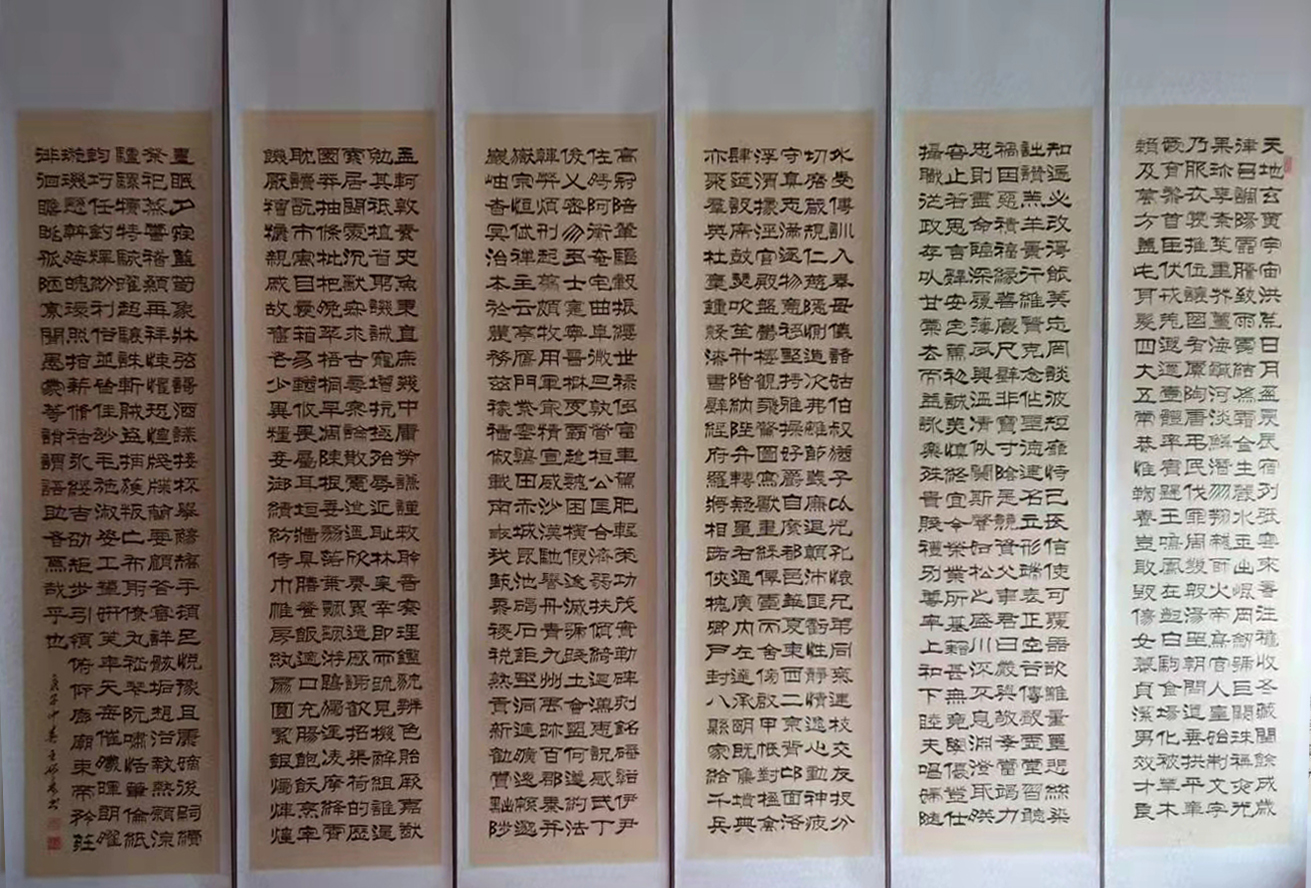 天地玄黃宇宙洪荒日月盈昃辰宿列張寒來暑往秋收冬藏閏餘成歲
律呂調陽雲騰致雨露結為霜金生麗水玉出崐岡劍號巨闕珠稱夜光
果珍李柰菜重芥薑海鹹河淡鱗潛羽翔龍師火帝鳥官人皇始制文字
乃服衣裳推位讓國有虞陶唐弔民伐罪周發殷湯坐朝問道垂拱平章
愛育黎首臣伏戎羌遐邇壹體率賓歸王鳴鳳在樹白駒食場化被草木
賴及萬方蓋此身髮四大五常恭惟鞠養豈敢毀傷女慕貞潔男效才良
知過必改得能莫忘罔談彼短靡恃己長信使可覆器欲難量墨悲絲染
詩讚羔羊景行維賢克念作聖德建名立形端表正空谷傳聲虛堂習聽
禍因惡積福緣善慶尺璧非寶寸陰是競資父事君曰嚴與敬孝當竭力
忠則盡命臨深履薄夙興溫凊似蘭斯馨如松之盛川流不息淵澄取映
容止若思言辭安定篤初誠美慎終宜令榮業所基籍甚無竟學優登仕
攝職從政存以甘棠去而益詠樂殊貴賤禮別尊卑上和下睦夫唱婦隨
外受傅訓入奉母儀諸姑伯叔猶子比兒孔懷兄弟同氣連枝交友投分
切磨箴規仁慈隱惻造次弗離節義廉退顛沛匪虧性靜情逸心動神疲
守真志滿逐物意移堅持雅操好爵自縻都邑華夏東西二京背邙面洛
浮渭據涇宮殿盤鬱樓觀飛驚圖寫禽獸畫彩仙靈丙舍傍啟甲帳對楹
肆筵設席鼓瑟吹笙升階納陛弁轉疑星右通廣內左達承明既集墳典
亦聚羣英杜稾鍾隸漆書壁經府羅將相路俠槐卿戶封八縣家給千兵
高冠陪輦驅轂振纓世祿侈富車駕肥輕策功茂實勒碑刻銘磻谿伊尹
佐時阿衡奄宅曲阜微旦孰營桓公匡合濟弱扶傾綺迴漢惠說感武丁
俊乂密勿多士寔寧晉楚更霸趙魏困橫假途滅虢踐土會盟何遵約法
韓弊煩刑起翦頗牧用軍最精宣威沙漠馳譽丹青九州禹跡百郡秦并
嶽宗恒岱禪主云亭雁門紫塞雞田赤城昆池碣石鉅野洞庭曠遠綿邈
巖岫杳冥治本於農務茲稼穡俶載南畝我藝黍稷稅熟貢新勸賞黜陟
孟軻敦素史魚秉直庶幾中庸勞謙謹敕聆音察理鑑貌辨色貽厥嘉猷
勉其祗植省躬譏誡寵增抗極殆辱近恥林皋幸即兩疏見機解組誰逼
索居閒處沉默寂寥求古尋論散慮逍遙欣奏累遣慼謝歡招渠荷的歷
園莽抽條枇杷晚翠梧桐早凋陳根委翳落葉飄颻遊鵾獨運凌摩絳霄
耽讀翫市寓目囊箱易輶攸畏屬耳垣牆具膳餐飯適口充腸飽飫烹宰
饑厭糟糠親戚故舊老少異糧妾御績紡侍巾帷房紈扇圓潔銀燭煒煌
晝眠夕寐藍筍象牀弦歌酒讌接杯舉觴矯手頓足悅豫且康嫡後嗣續
祭祀蒸嘗稽顙再拜悚懼恐惶牋牒簡要顧答審詳骸垢想浴執熱願涼
驢騾犢特駭躍超驤誅斬賊盜捕獲叛亡布射僚丸嵇琴阮嘯恬筆倫紙
鈞巧任釣釋紛利俗並皆佳妙毛施淑姿工顰妍笑年矢每催曦暉朗曜
璇璣懸斡晦魄環照指薪修祜永綏吉劭矩步引領俯仰廊廟束帶矜莊
徘徊瞻眺孤陋寡聞愚蒙等誚謂語助者焉哉乎也